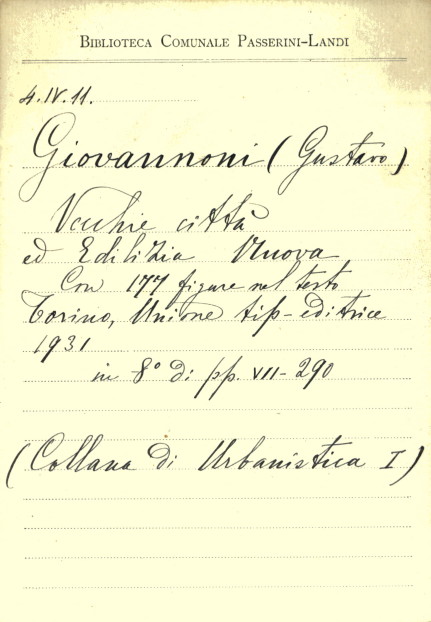 BIBLIOTECA COMUNALE PASSERINI-LANDI
4.IV.11.
Giovannoni (Gustavo)
Vecchie città
ed Edilizia Nuova
Con 177 figure nel testo
Torino, Unione tip-editrice
1931
in 8° di pp. VII-290
(Collana di Urbanistica I)